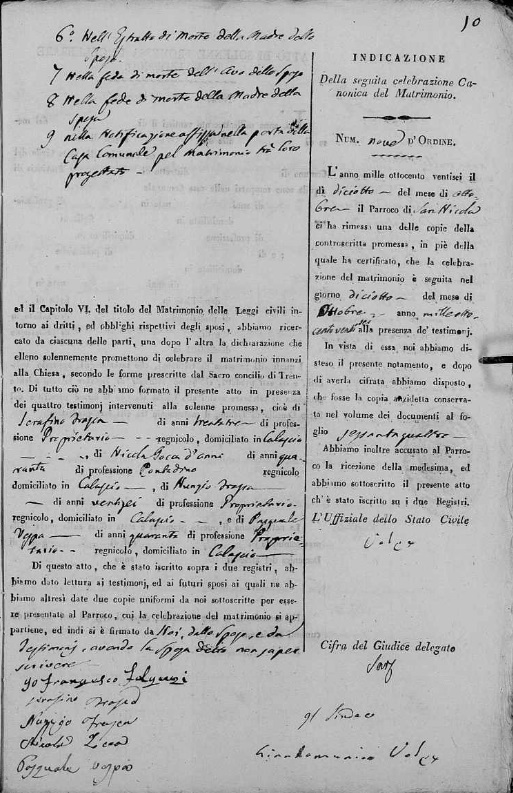 10
6º Nell'Estratto di morte della Madre dello
Sposo
7 Nella fede di morte dell'Avo dello Sposo
8 Nella fede di morte della Madre della
Sposa
9 nella Notificazione affissa nella porta della
Casa Comunale pel Matrimonio tra loro
progettato
ed il Capitolo VI. del titolo del Matrimonio delle Leggi civili in-
torno ai dritti, ed obblighi rispettivi degli sposi, abbiamo ricer-
cato da ciascuna delle parti, una dopo l'altra la dichiarazione che
elleno solennemente promettono di celebrare il matrimonio innanzi
alla Chiesa, secondo le forme prescritte dal Sacro concilio di Tren-
to. Di tutto ciò ne abbiamo formato il presente atto in presenza
dei quattro testimonj intervenuti alla solenne promessa, cioè di
Serafino Frasca di anni trentatre di profes-
sione Proprietario regnicolo, domiciliato in Calascio
, di Nicola d'anni qua-
ranta di professione Contadino regnicolo
domiciliato in Calascio, di Nunzio Frasca
di anni ventisei di professione Proprietario
regnicolo, domiciliato in Calascio, e di Pasquale
Vespa di anni quaranta di professione Proprie-
tario regnicolo, domiciliato in Calascio
Di questo atto, che è stato iscritto sopra i due registri, ab-
biamo dato lettura ai testimonj, ed ai futuri sposi ai quali ne ab-
biamo altresì date due copie uniformi da noi sottoscritte per esse-
re presentate al Parroco, cui la celebrazione del matrimonio si ap-
partiene, ed indi si è firmato da Noi, dallo Sposo, e da
Testimonj, avendo la Sposa detto non saper
scrivere
Io Francesco
Serafino Frasca
Nunzio Frasca
Nicola
Pasquale Vespa
INDICAZIONE
Della seguita celebrazione Ca-
nonica del Matrimonio.
NUM. nove D'ORDINE.
L'anno mille ottocento ventisei il
dì diciotto del mese di otto-
bre il Parroco di San Nicola
ci ha rimessa una delle copie della
controscritta promessa, in piè della
quale ha certificato, che la celebra-
zione del matrimonio è seguita nel
giorno diciotto del mese di
Ottobre anno mille otto-
cento alla presenza de' testimonj.
In vista di essa noi abbiamo di-
steso il presente notamento, e dopo
di averla cifrata abbiamo disposto,
che fosse la copia anzidetta conserva-
ta nel volume dei documenti al fo-
glio sessantaquattro
Abbiamo inoltre accusato al Parro-
co la ricezione della medesima, ed
abbiamo sottoscritto il presente atto
ch'è stato iscritto su i due Registri.
L'Uffiziale dello Stato Civile
Cifra del Giudice delegato
Il Sindaco